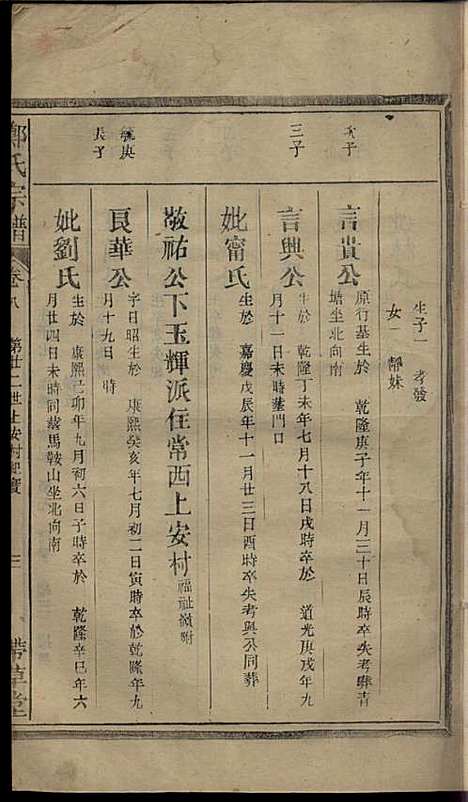 生子一　孝發
女一　靜妹
次子
言貴公
原行基生於　乾隆庚子年十一月三十日辰時卒失考葬青
塘坐北向南
三子
言興公
生於　乾隆丁未年七月十八日戌時卒於　道光庚戌年九
月十一日未時葬門口
妣甯氏
生於　嘉慶戊辰年十一月廿三日酉時卒失考與公同葬
敬祐公下玉輝派住常西上安村
福祉嶺附
毓庚
長子
良華公
字日昭生於　康熙癸亥年七月初二日寅時卒於乾隆年九
月十九日　時
妣劉氏
生於　康熙己卯年九月初六日子時卒於　乾隆辛巳年六
月廿四日未時同葬馬鞍山坐北向南
鄭氏宗譜
卷八　第廿二世上安村
三
帶草堂